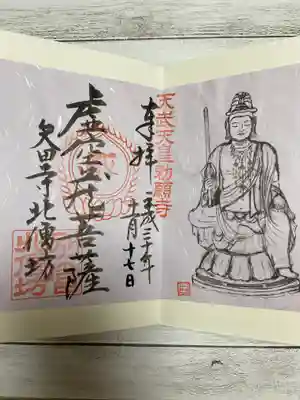 奉拝
天武天皇勅願寺
平成三十年
十一月十七日
虚空蔵菩薩
矢田寺北僧坊